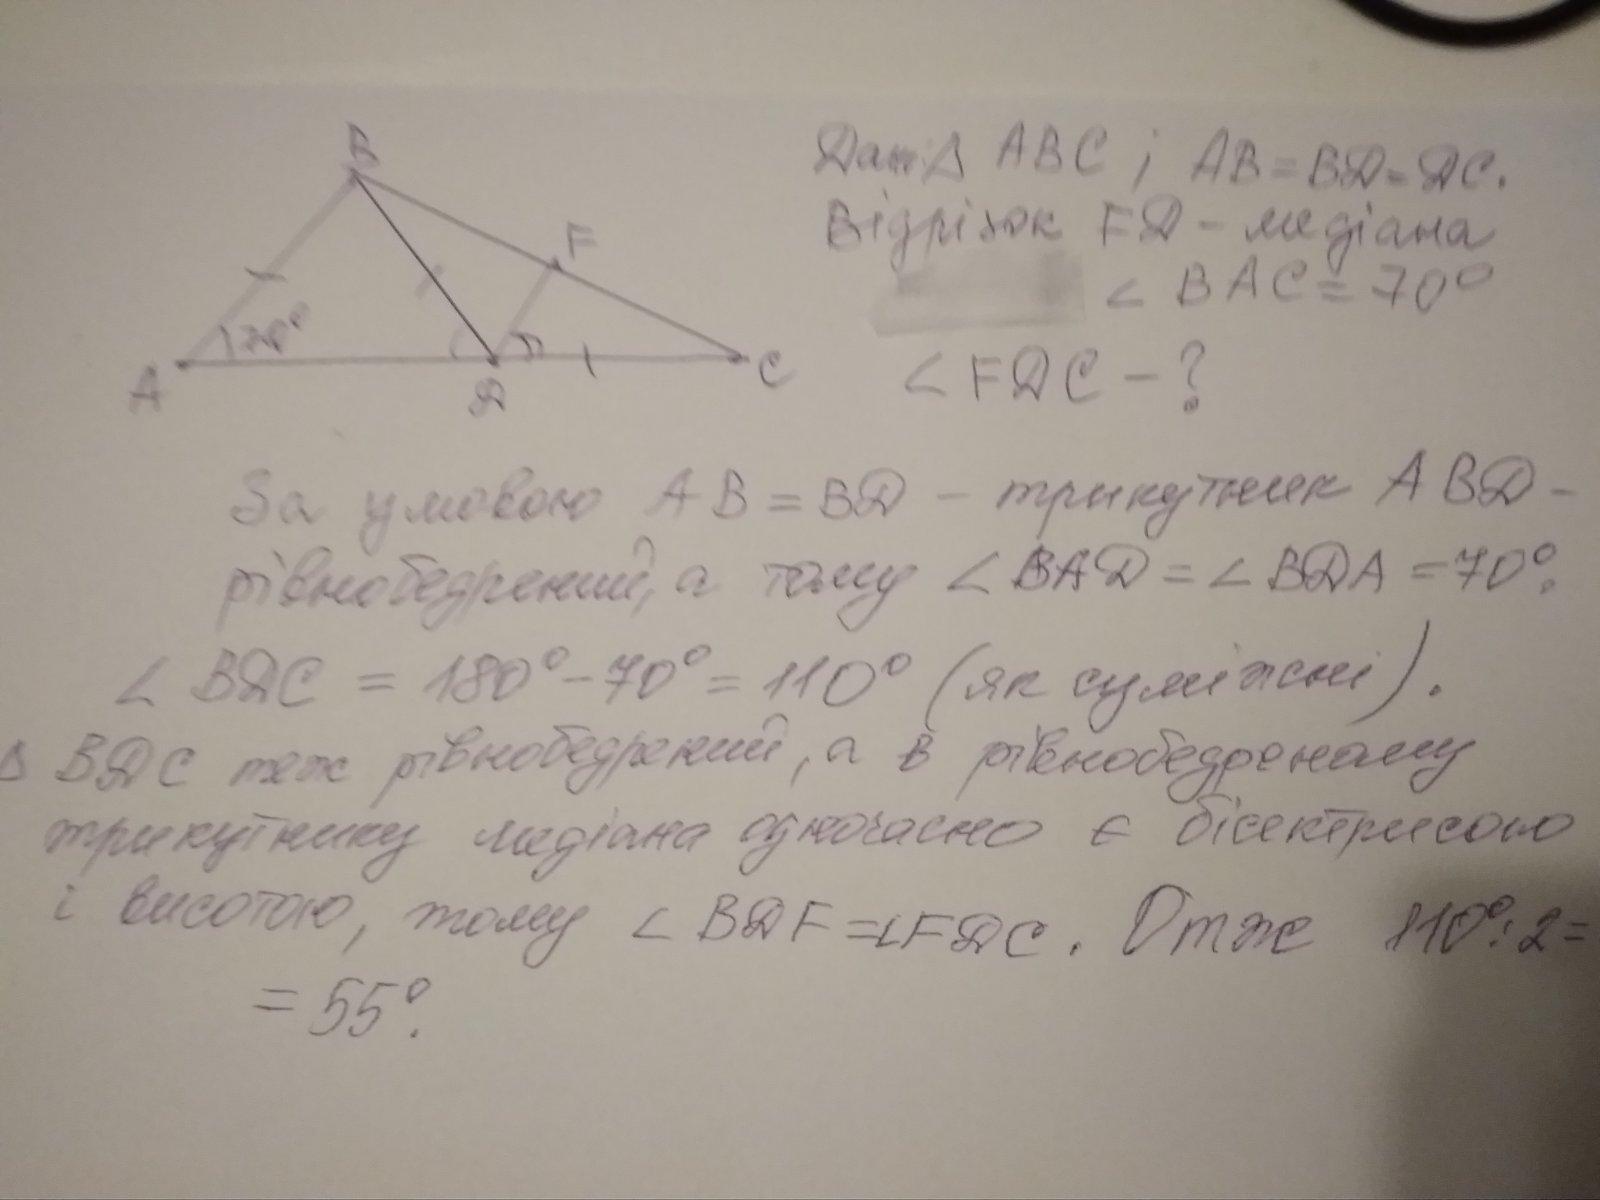 B
F
A
70°
D
C
Дан Δ ABC ; AB=BD=DC.
Відрізок FD - медіана
∠ BAC = 70°
∠ FDC - ?
За умовою AB = BD - трикутник ABD -
рівнобедрений, а тому ∠ BAD = ∠ BDA = 70°.
∠ BDC = 180° - 70° = 110° (як суміжні).
Δ BDC теж рівнобедрений, а в рівнобедреному
трикутнику медіана одночасно є бісектрисою
і висотою, тому ∠ BDF = ∠FDC. Отже 110°:2=
= 55°.